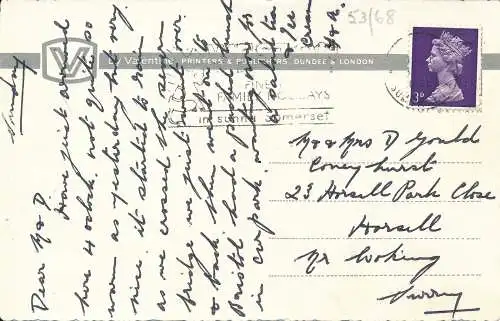 53/68
V
by Valentine. PRINTERS & PUBLISHERS, DUNDEE & LONDON
FINEST
FAMILY HOLIDAYS
in sunny Somerset
3D
Sunday
Dear M & D
Have just arrived
here 4 oclock. not quite so
warm as yesterday but very
nice. it started to rain
as we crossed the severn
bridge we just went over
& back then went on to
Bristol had a picnic lunch
in car park.
Mr & Mrs D Gould
Coneyhurst
23 Horsell Park Close
Horsell
Nr Woking
Surrey